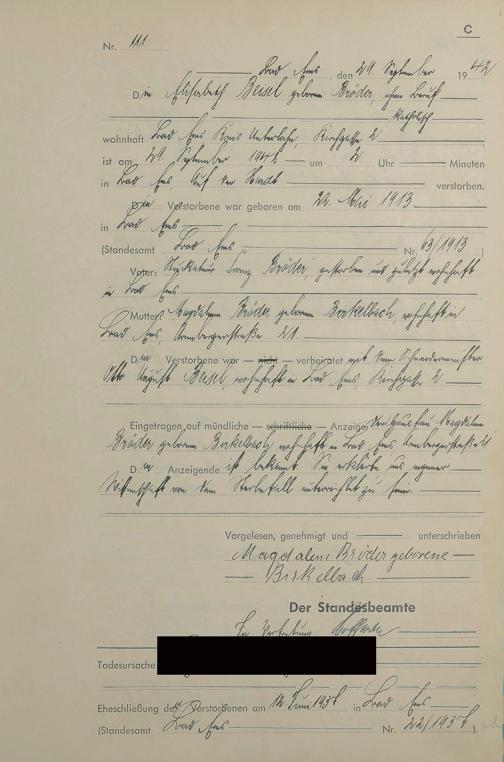 C
Nr. 111
Bad Ems, den 29. September 1942
Die Elisabeth Beisel geborene Bröder, ohne Beruf
katholisch
wohnhaft Bad Ems Kreis Unterlahn, Kirchgasse 2
ist am 29. September 1942 um 2 Uhr Minuten
in Bad Ems auf der Stadt verstorben.
Die Verstorbene war geboren am 22. Mai 1913
in Bad Ems
(Standesamt Bad Ems Nr. 63/1913)
Vater: Franz Bröder, gestorben und zuletzt wohnhaft
in Bad Ems
Mutter: Magdalena Bröder geborene Birkelbach, wohnhaft in
Bad Ems, 21
Die Verstorbene war — nicht — verheiratet mit dem Schneidermeister
Otto August Beisel, wohnhaft in Bad Ems Kirchgasse 2
Eingetragen auf mündliche — schriftliche — Anzeige der Hausfrau Magdalena
Bröder geborene Birkelbach wohnhaft in Bad Ems
Die Anzeigende ist bekannt. Sie erklärte aus eigener
Wissenschaft von dem Sterbefall unterrichtet zu sein.
Vorgelesen, genehmigt und unterschrieben
Magdalena Bröder geborene
Birkelbach
Der Standesbeamte
In Vertretung:
Todesursache
Eheschließung der Verstorbenen am 12. Juni 1937 in Bad Ems
(Standesamt Bad Ems Nr. 22/1937)